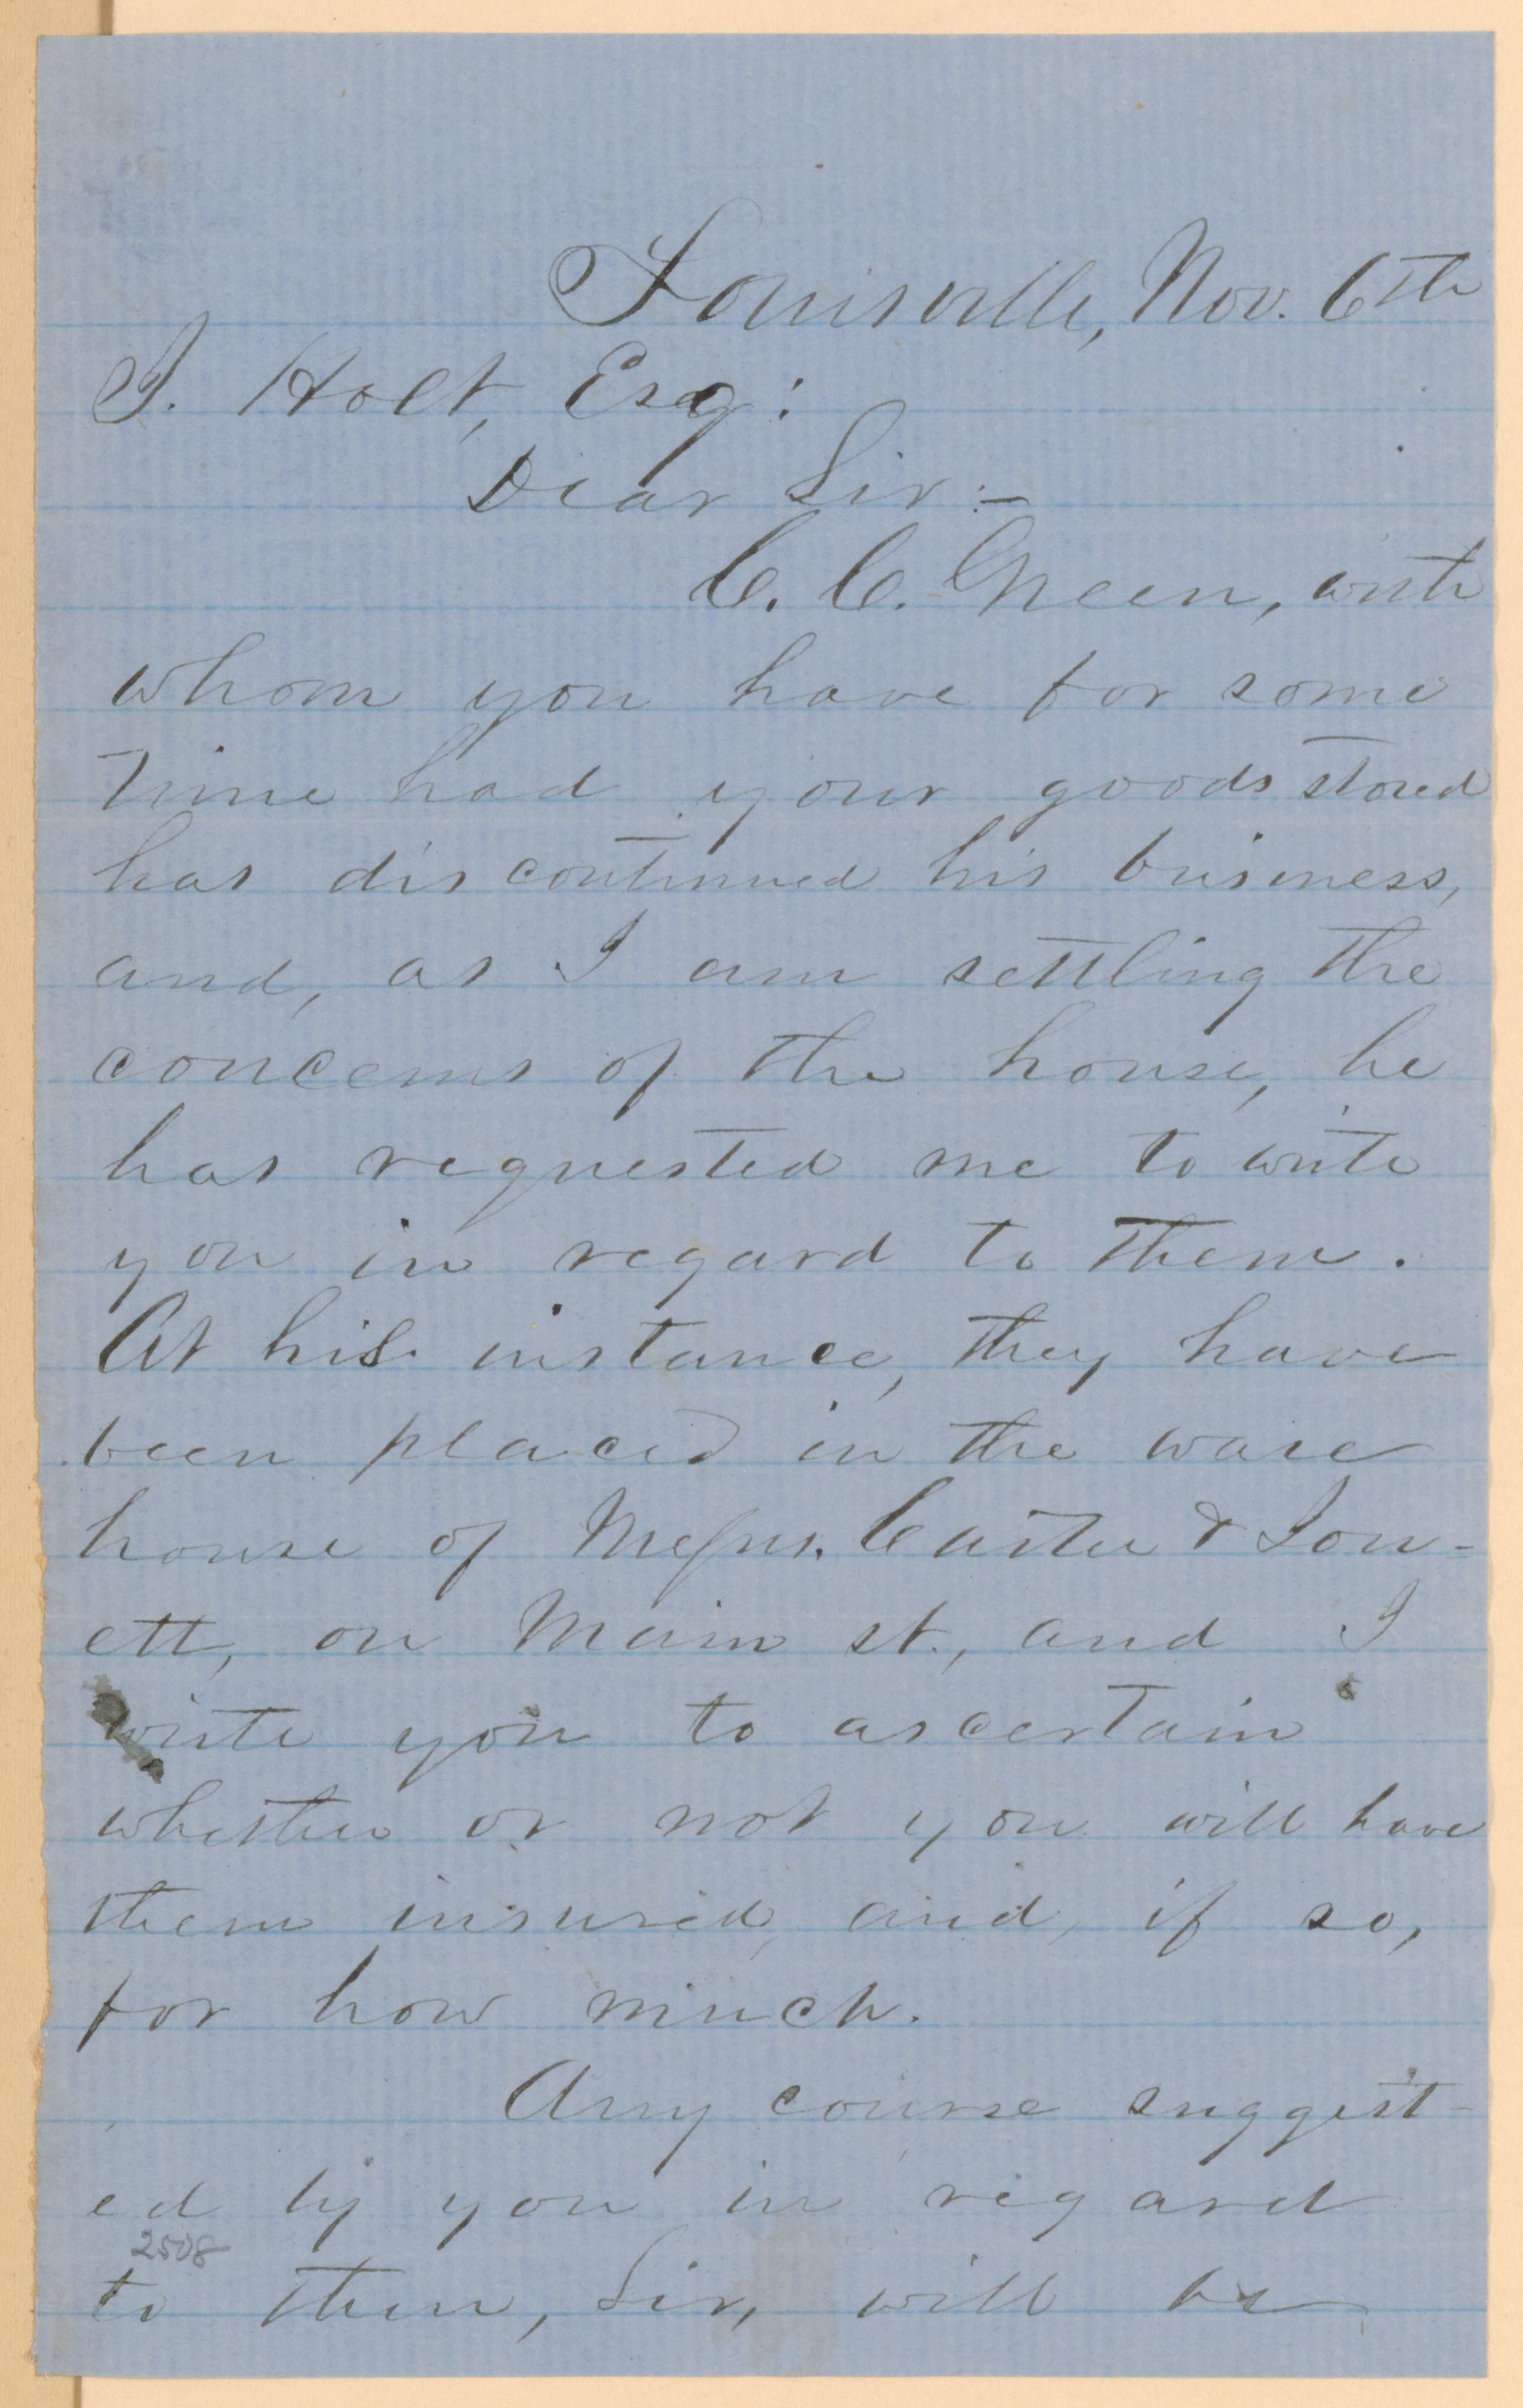 Louisville, Nov. 6th
J. Holt, Esq:
Dear Sir:-
C. C. Green, with
whom you have for some
time had your goods stored
has discontinued his business,
and, as I am settling the
concerns of the house, he
has requested me to write
you in regard to them.
At his instance, they have
been placed in the ware
house of Messrs. Carter & Jou-
ett, on Main st., and I
write you to ascertain
whether or not you will have
them insured, and, if so,
for how much.
Any course suggest-
ed by you in regard
2508
to them, Sir, will be